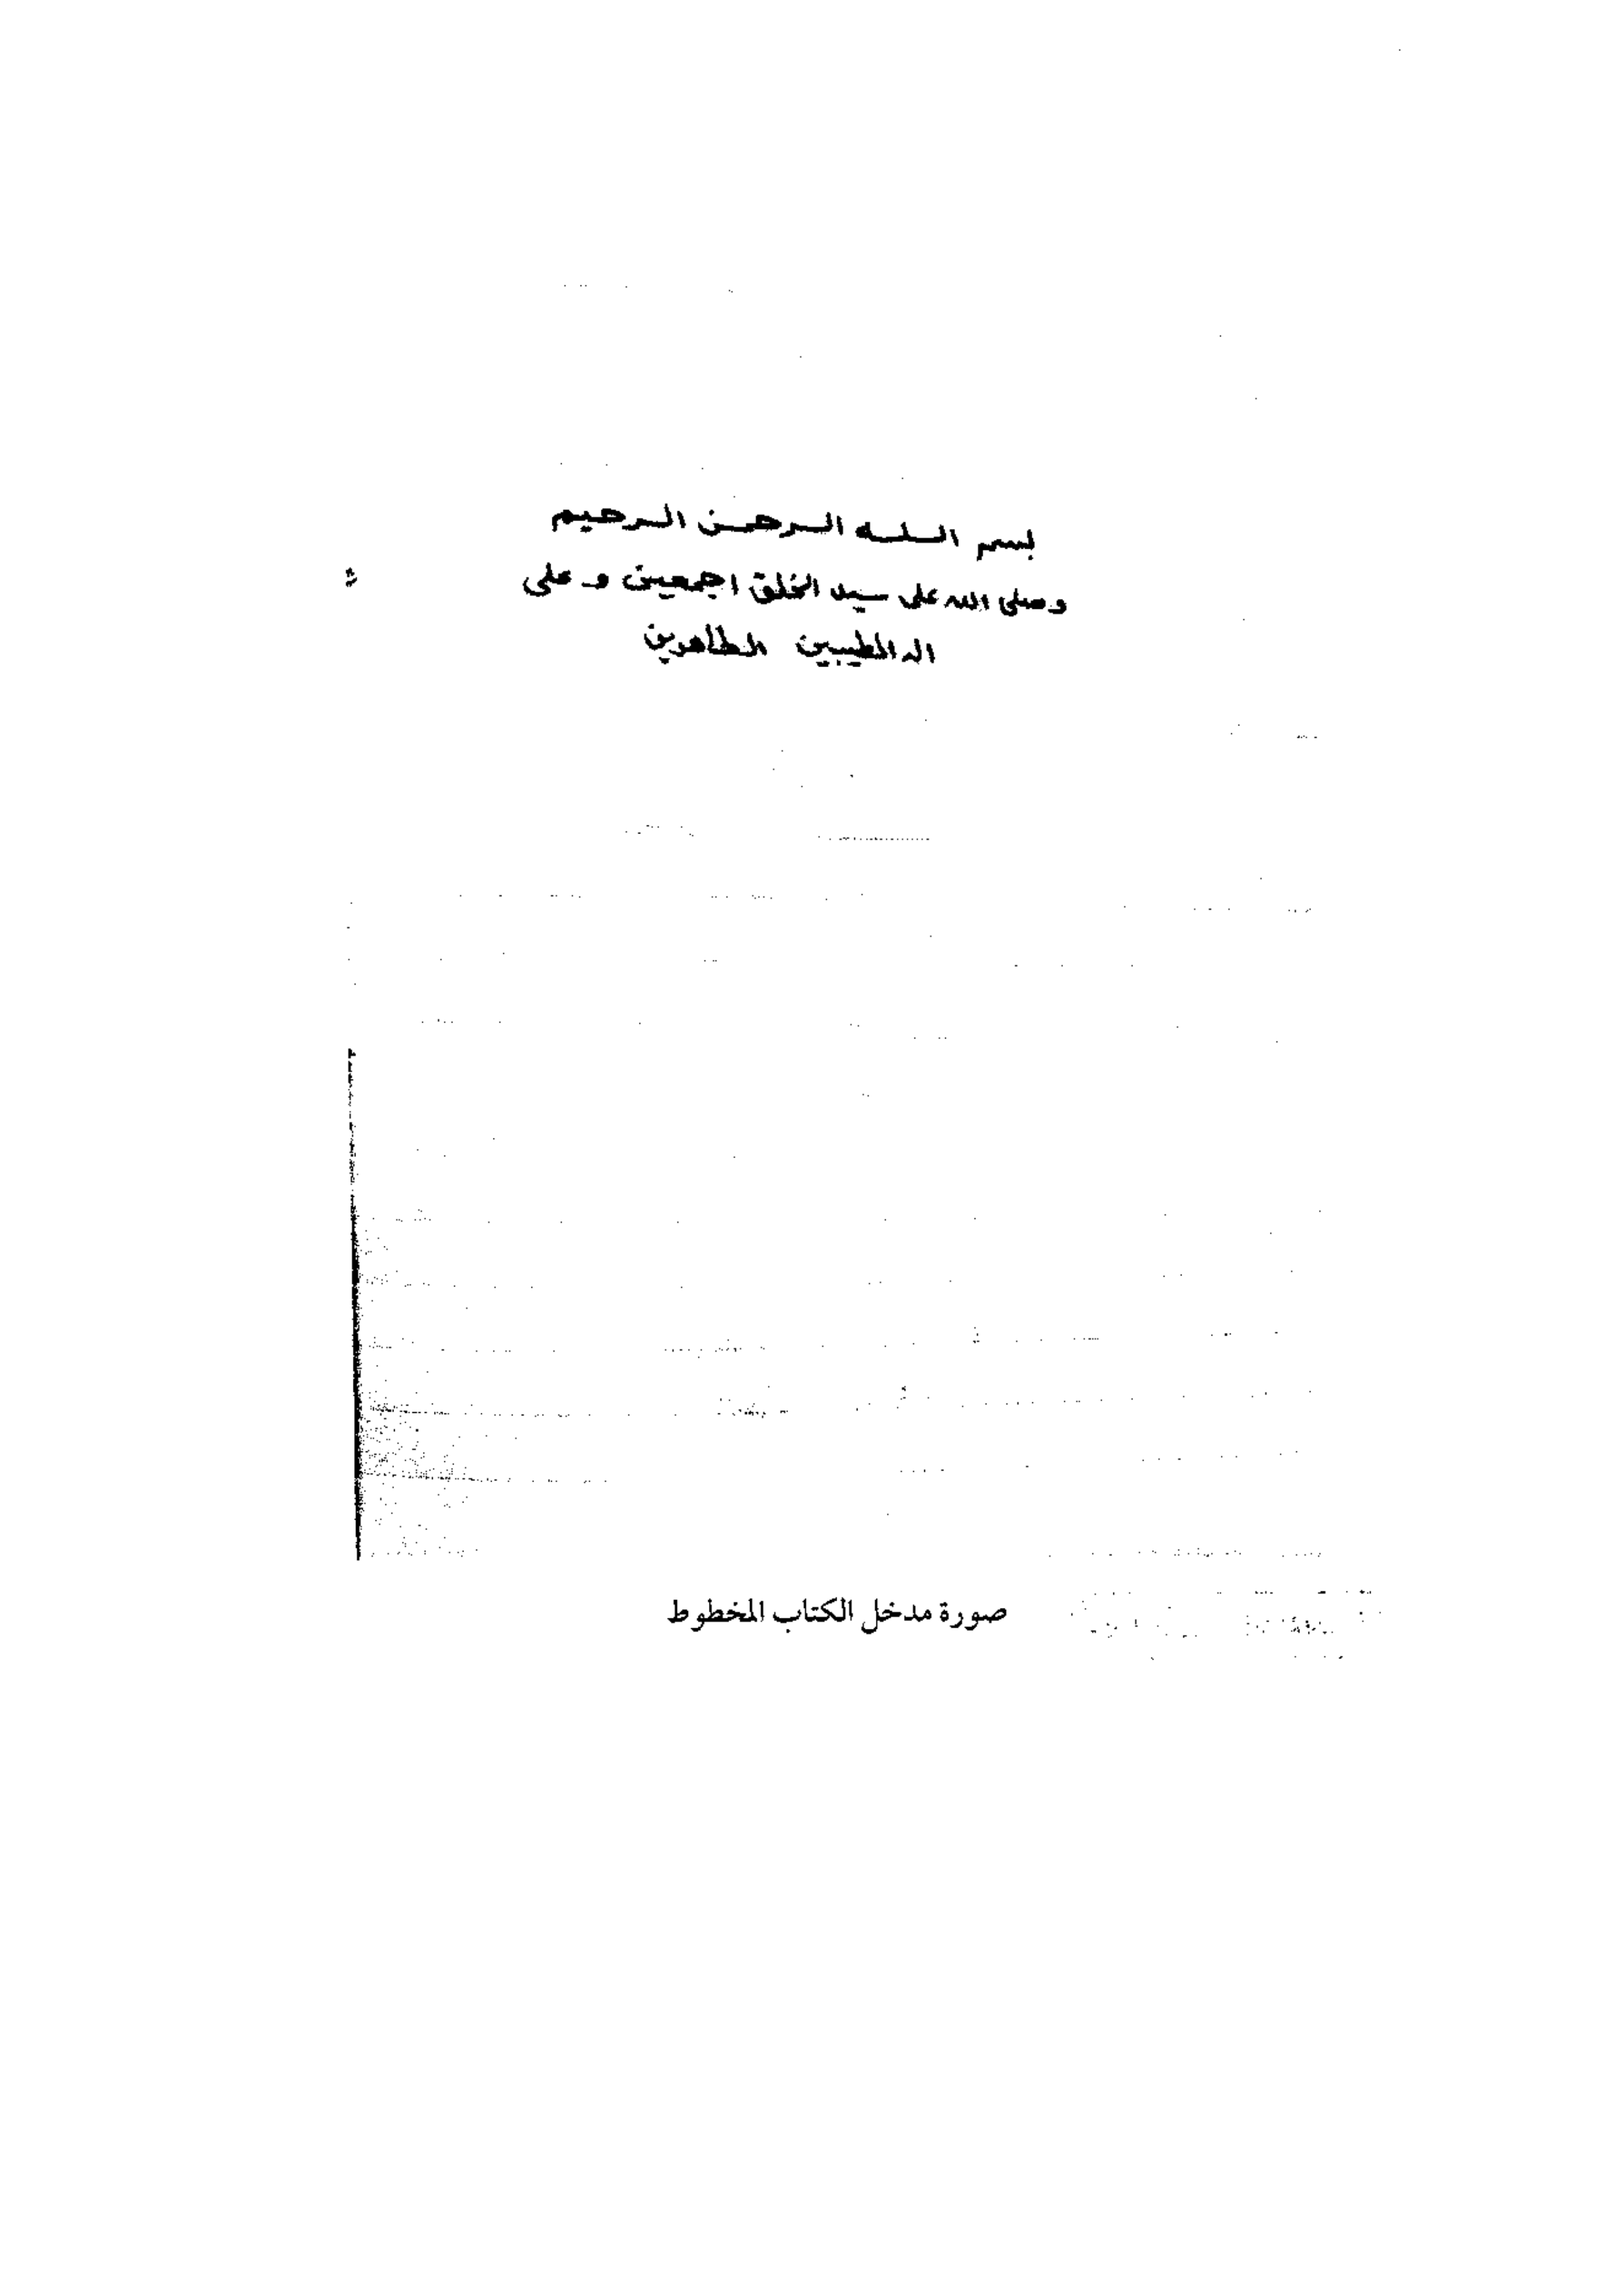 بسم اللـه الـرحمـن الـرحيم
وصلى الله على سيد الخلق اجمعين و على
اله الطيبين الطاهرين
صورة مدخل الكتاب المخطوط